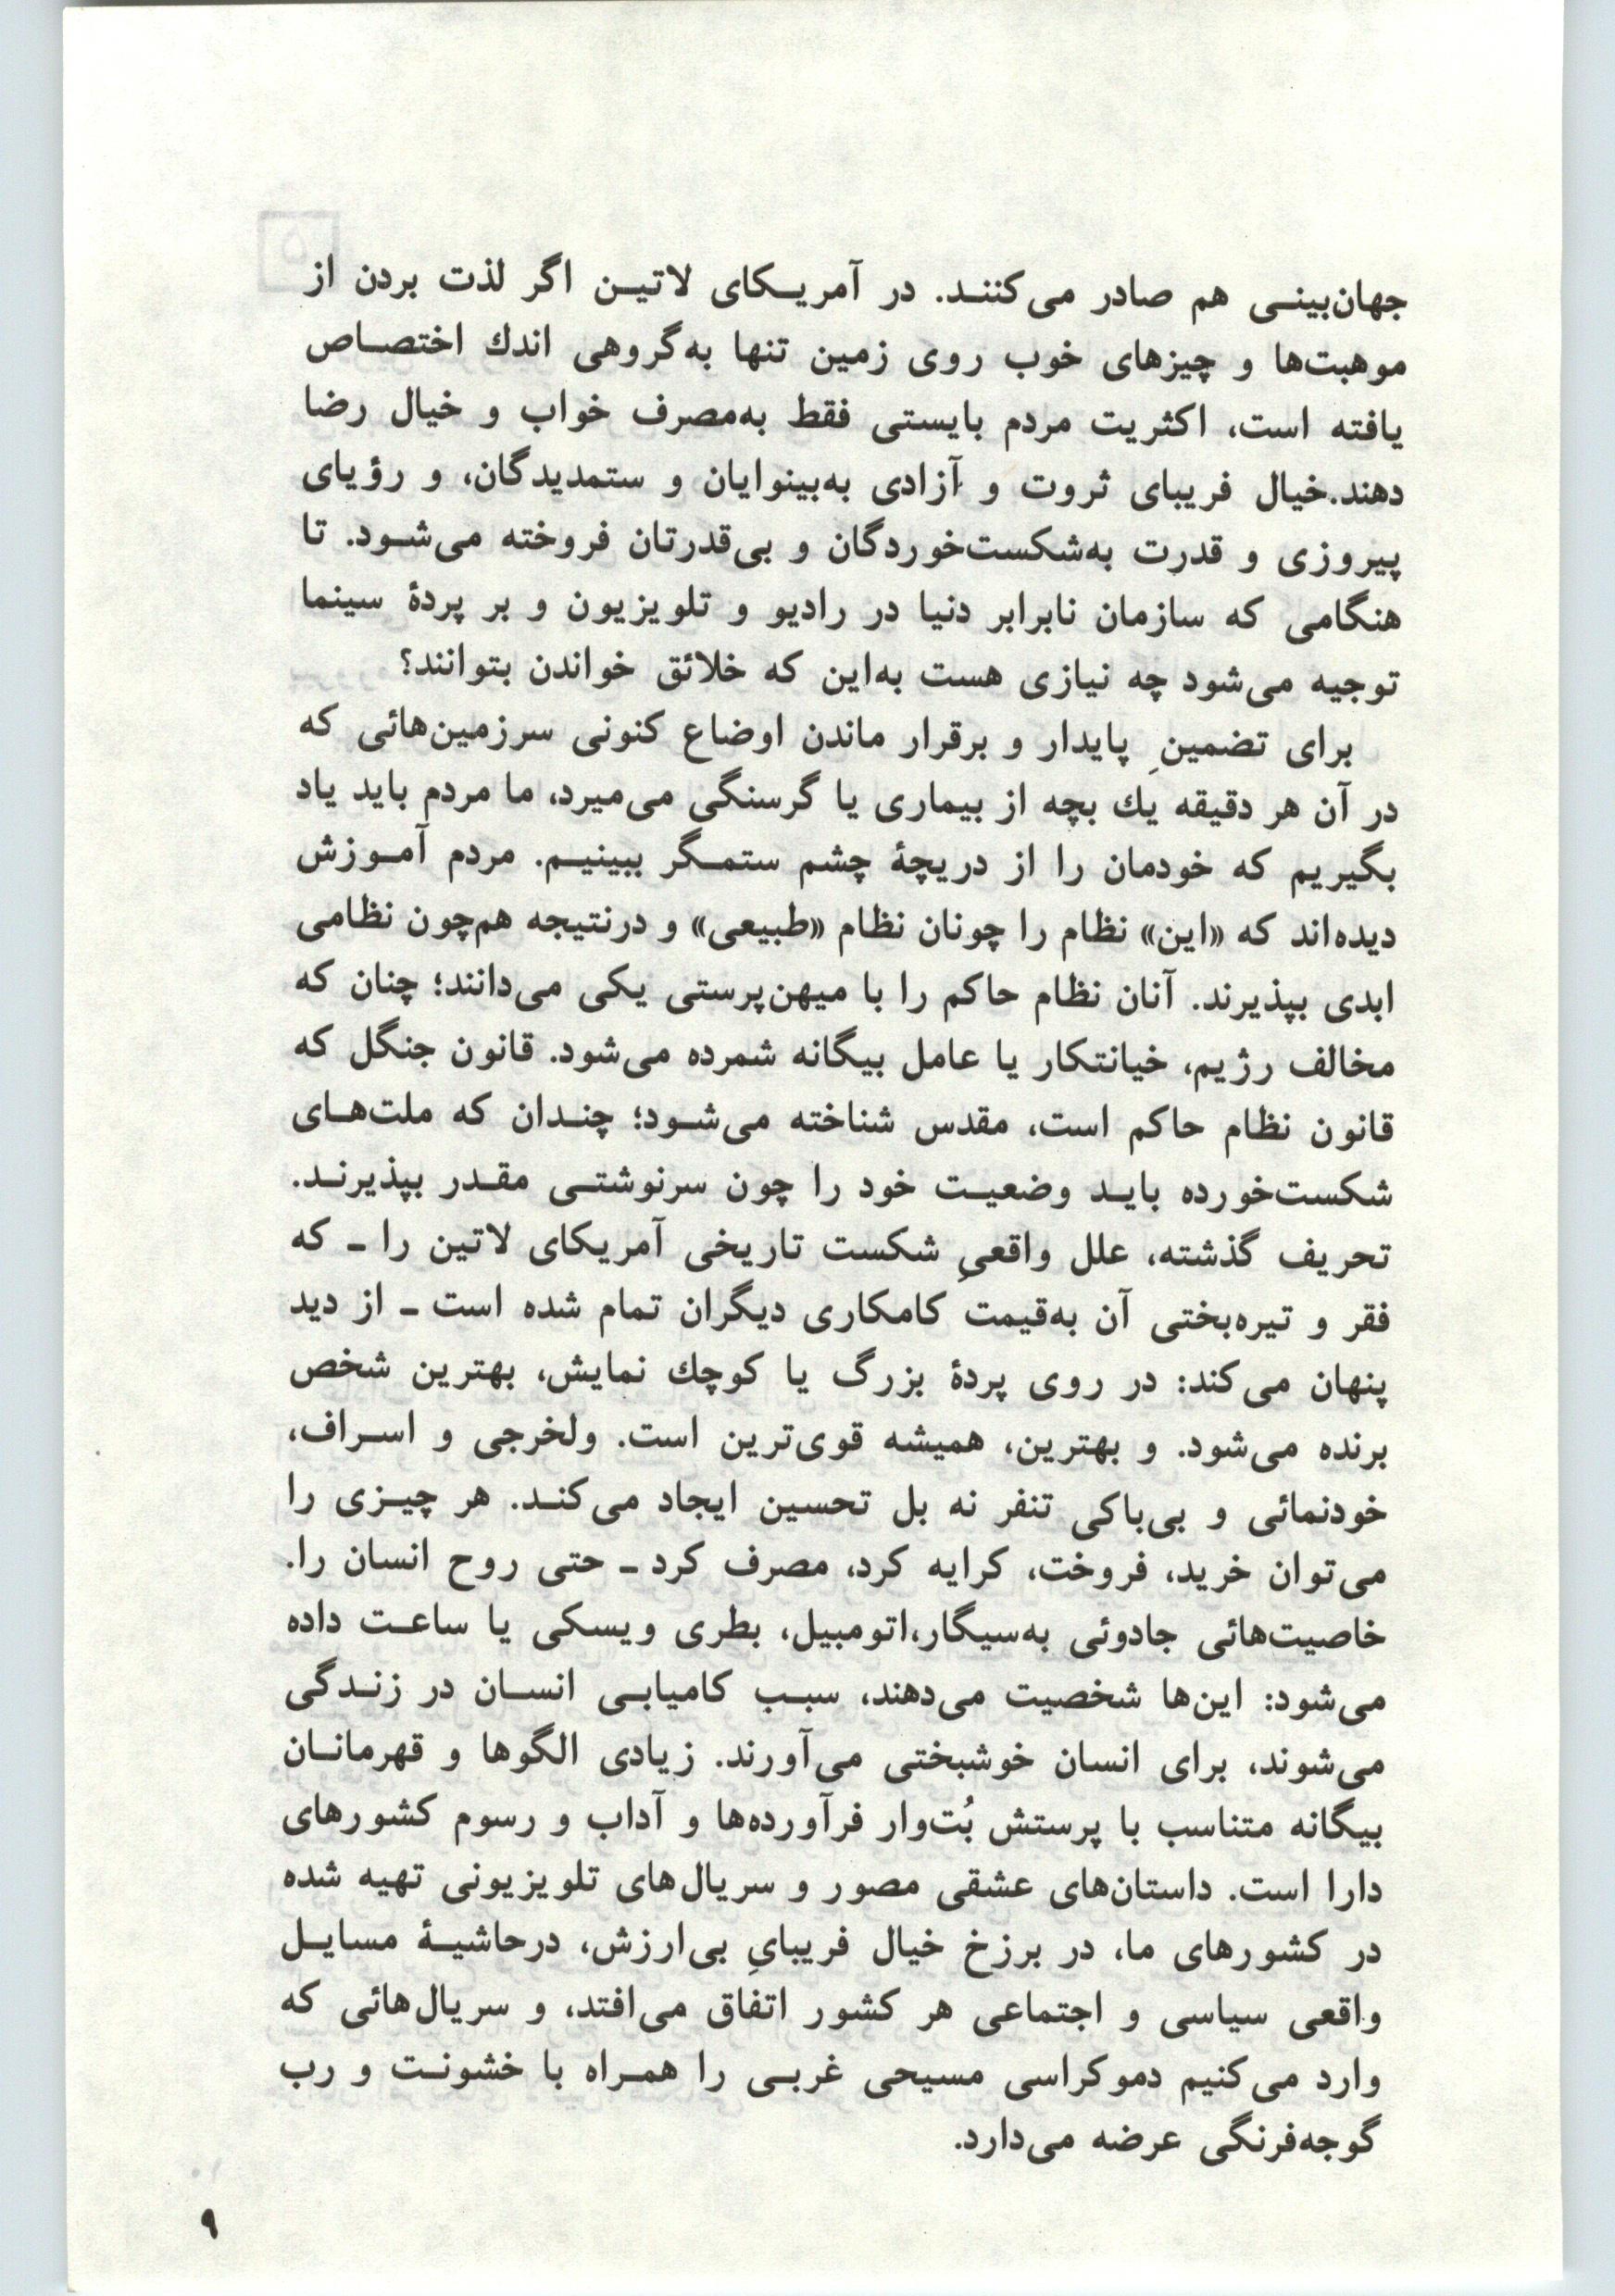 جهان‌بینی هم صادر می‌کنند. در آمریکای لاتین اگر لذت بردن از
موهبت‌ها و چیزهای خوب روی زمین تنها به‌گروهی اندك اختصاص
یافته است، اکثریت مردم بایستی فقط به‌مصرف خواب و خیال رضا
دهند.خیال فریبای ثروت و آزادی به‌بینوایان و ستمدیدگان، و رؤیای
پیروزی و قدرت به‌شکست‌خوردگان و بی‌قدرتان فروخته می‌شود. تا
هنگامی که سازمان نابرابر دنیا در رادیو و تلویزیون و بر پردهٔ سینما
توجیه می‌شود چه نیازی هست به‌این که خلائق خواندن بتوانند؟
برای تضمینِ پایدار و برقرار ماندن اوضاع کنونی سرزمین‌هائی که
در آن هر دقیقه یك بچه از بیماری یا گرسنگی می‌میرد، ما مردم باید یاد
بگیریم که خودمان را از دریچهٔ چشم ستمگر ببینیم. مردم آموزش
دیده‌اند که «این» نظام را چونان نظام «طبیعی» و درنتیجه هم‌چون نظامی
ابدی بپذیرند. آنان نظام حاکم را با میهن‌پرستی یکی می‌دانند؛ چنان که
مخالف رژیم، خیانتکار یا عامل بیگانه شمرده می‌شود. قانون جنگل که
قانون نظام حاکم است، مقدس شناخته می‌شود؛ چندان که ملت‌های
شکست‌خورده باید وضعیت خود را چون سرنوشتی مقدر بپذیرند.
تحریف گذشته، علل واقعیِ شکست تاریخی آمریکای لاتین را ـ که
فقر و تیره‌بختی آن به‌قیمت کامکاری دیگران تمام شده است ـ از دید
پنهان می‌کند: در روی پردهٔ بزرگ یا کوچك نمایش، بهترین شخص
برنده می‌شود. و بهترین، همیشه قوی‌ترین است. ولخرجی و اسراف،
خودنمائی و بی‌باکی تنفر نه بل تحسین ایجاد می‌کند. هر چیزی را
می‌توان خرید، فروخت، کرایه کرد، مصرف کرد ـ حتی روح انسان را.
خاصیت‌هائی جادوئی به‌سیگار،اتومبیل، بطری ویسکی یا ساعت داده
می‌شود: این‌ها شخصیت می‌دهند، سبب کامیابی انسان در زندگی
می‌شوند، برای انسان خوشبختی می‌آورند. زیادی الگوها و قهرمانان
بیگانه متناسب با پرستش بُت‌وار فرآورده‌ها و آداب و رسوم کشورهای
دارا است. داستان‌های عشقی مصور و سریال‌های تلویزیونی تهیه شده
در کشورهای ما، در برزخ خیال فریبایِ بی‌ارزش، درحاشیهٔ مسایل
واقعی سیاسی و اجتماعی هر کشور اتفاق می‌افتد، و سریال‌هائی که
وارد می‌کنیم دموکراسی مسیحی غربی را همراه با خشونت و رب
گوجه‌فرنگی عرضه می‌دارد.
۹